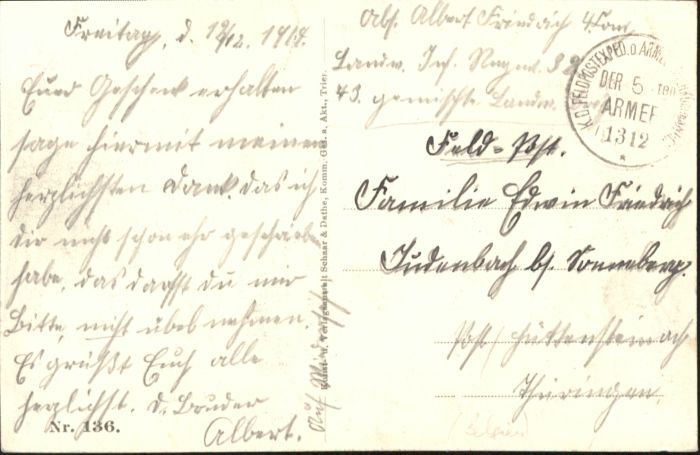 Freitag, d. 12/12. 1914.
Euer Geschenk erhalten
sage hiermit meinen
herzlichsten Dank. das ich
dir nicht schon ehr geschrieben
habe, das darfst du mir
Bitte nicht übel nehmen.
Es grüßt Euch alle
herzlichst. d. Bruder
Albert.
Auf
Nr. 136.
Verlagsanstalt Schaar & Dathe, Komm. Ges. a. Akt., Trier.
Abs. Albert Friedrich 4. Com
Landw. Inf. Regmt. 32
43. gemischte Landw.
K.D. FELDPOSTEXPED. D. ARMEE
DER 5.
ARMEE
1312
Feld-Post.
Familie Edwin Friedrich
Judenbach bs. Sonneberg.
Post Hüttensteinach
Thüringen